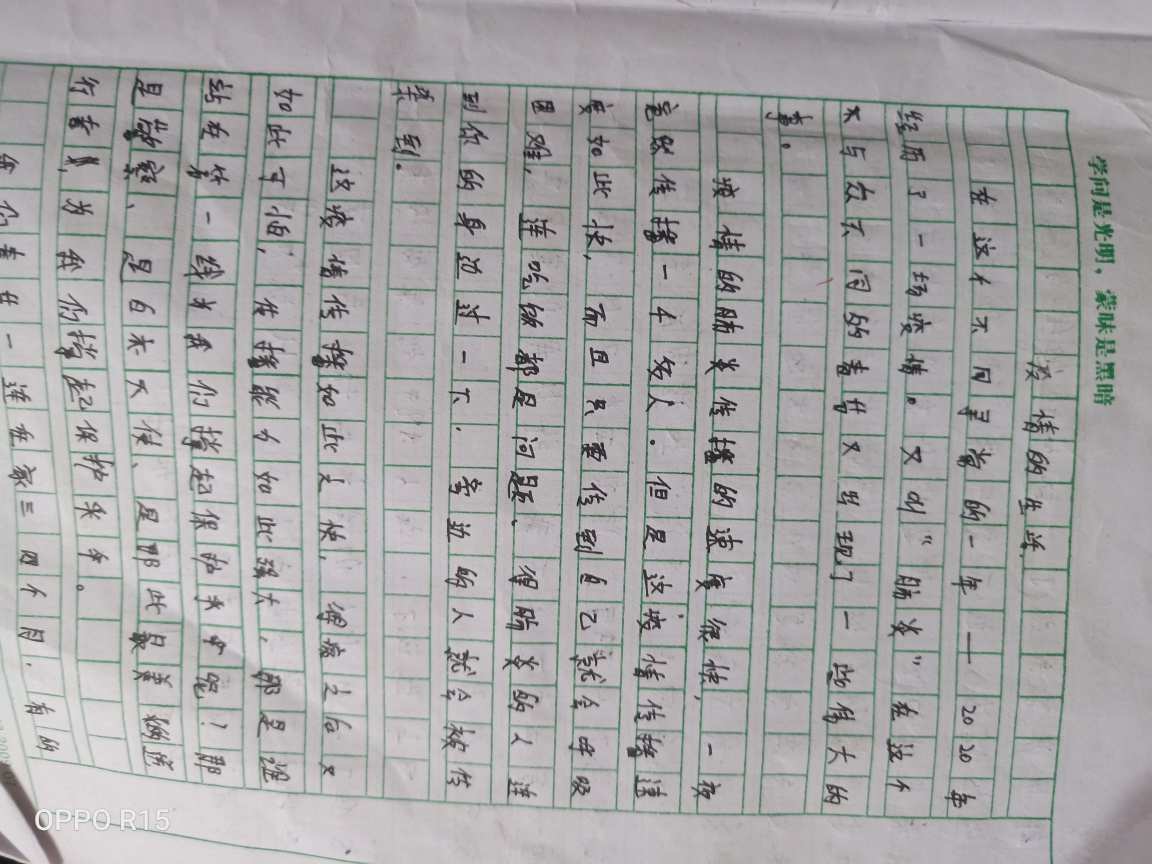 学问是光明，蒙昧是黑暗
疫情的生活
在这个不同寻常的一年——2020年
经历了一场疫情。又叫“肺炎”在这个
不与众不同的春节又出现了一些伟大的
事。
疫情的肺炎传播的速度很快，一夜
竟然传播一个多人。但是这疫情传播速
度如此快，而且只要传到自己就会呼吸
困难，连吃饭都是问题、得肺炎的人连
到你的身边过一下.旁边的人就会被传
染到.
这疫情传播如此之快，得病之后又
如此可怕，传播能力如此强大、那是谁
站在第一线来我们撑起保护伞呢！那
是白衣天使、是那些最美
行者，为我们撑起保护伞。
一连在家三四个月.有的
OPPO R15